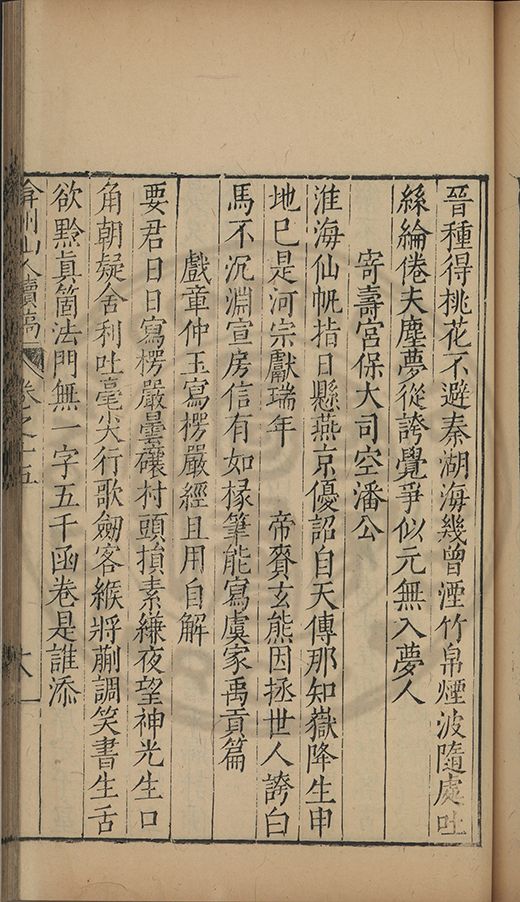 晉種得桃花不避秦湖海幾曾湮竹帛煙波隨處吐
絲綸倦夫塵夢從誇覺爭似元無入夢人
寄壽宮保大司空潘公
淮海仙帆指日懸燕京優詔自天傳那知嶽降生申
地巳是河宗獻瑞年 帝賚玄熊因拯世人誇白
馬不沉淵宣房信有如椽筆能寫虞家禹貢篇
戲章仲玉寫楞嚴經且用自解
要君日日寫楞嚴曇礶村頭損素縑夜望神光生口
角朝疑舍利吐毫尖行歌劒客緱將蒯調笑書生舌
欲黔眞箇法門無一字五千函卷是誰添
弇州山人續稿 卷之十五